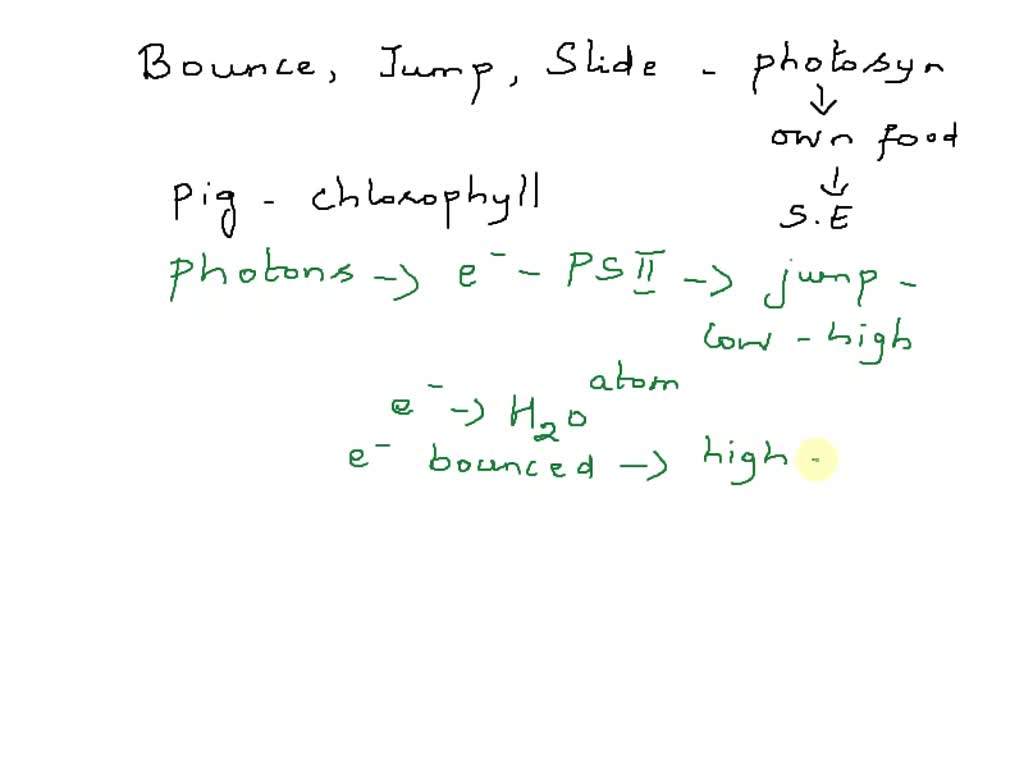 Bounce, Jump, Slide - photosyn
↓
own food
↓
Pig - chlorophyll S.E
photons → e⁻ - PSII → jump -
low - high
e⁻ → H₂O atom
e⁻ bounced → high -